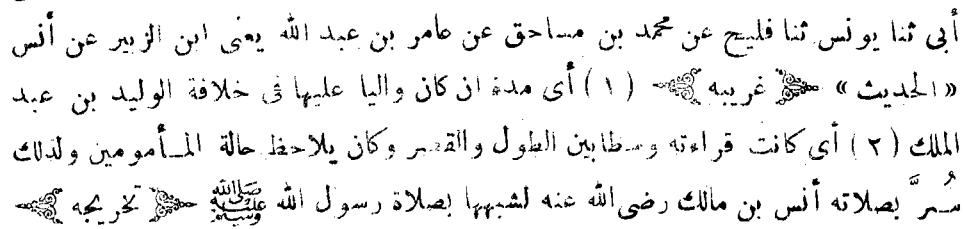 أبى ثنا يونس ثنا فليح عن محمد بن مساحق عن عامر بن عبد الله يعنى ابن الزبير عن أنس
« الحديث » ﴿ غريبه ﴾ ( ١ ) أى مدة ان كان واليا عليها فى خلافة الوليد بن عبد
الملك ( ٢ ) أى كانت قراءته وسطا بين الطول والقصر وكان يلاحظ حالة المأمومين ولذلك
سُرَّ بصلاته أنس بن مالك رضى الله عنه لشبهها بصلاة رسول الله ﷺ ﴿ تخريجه ﴾